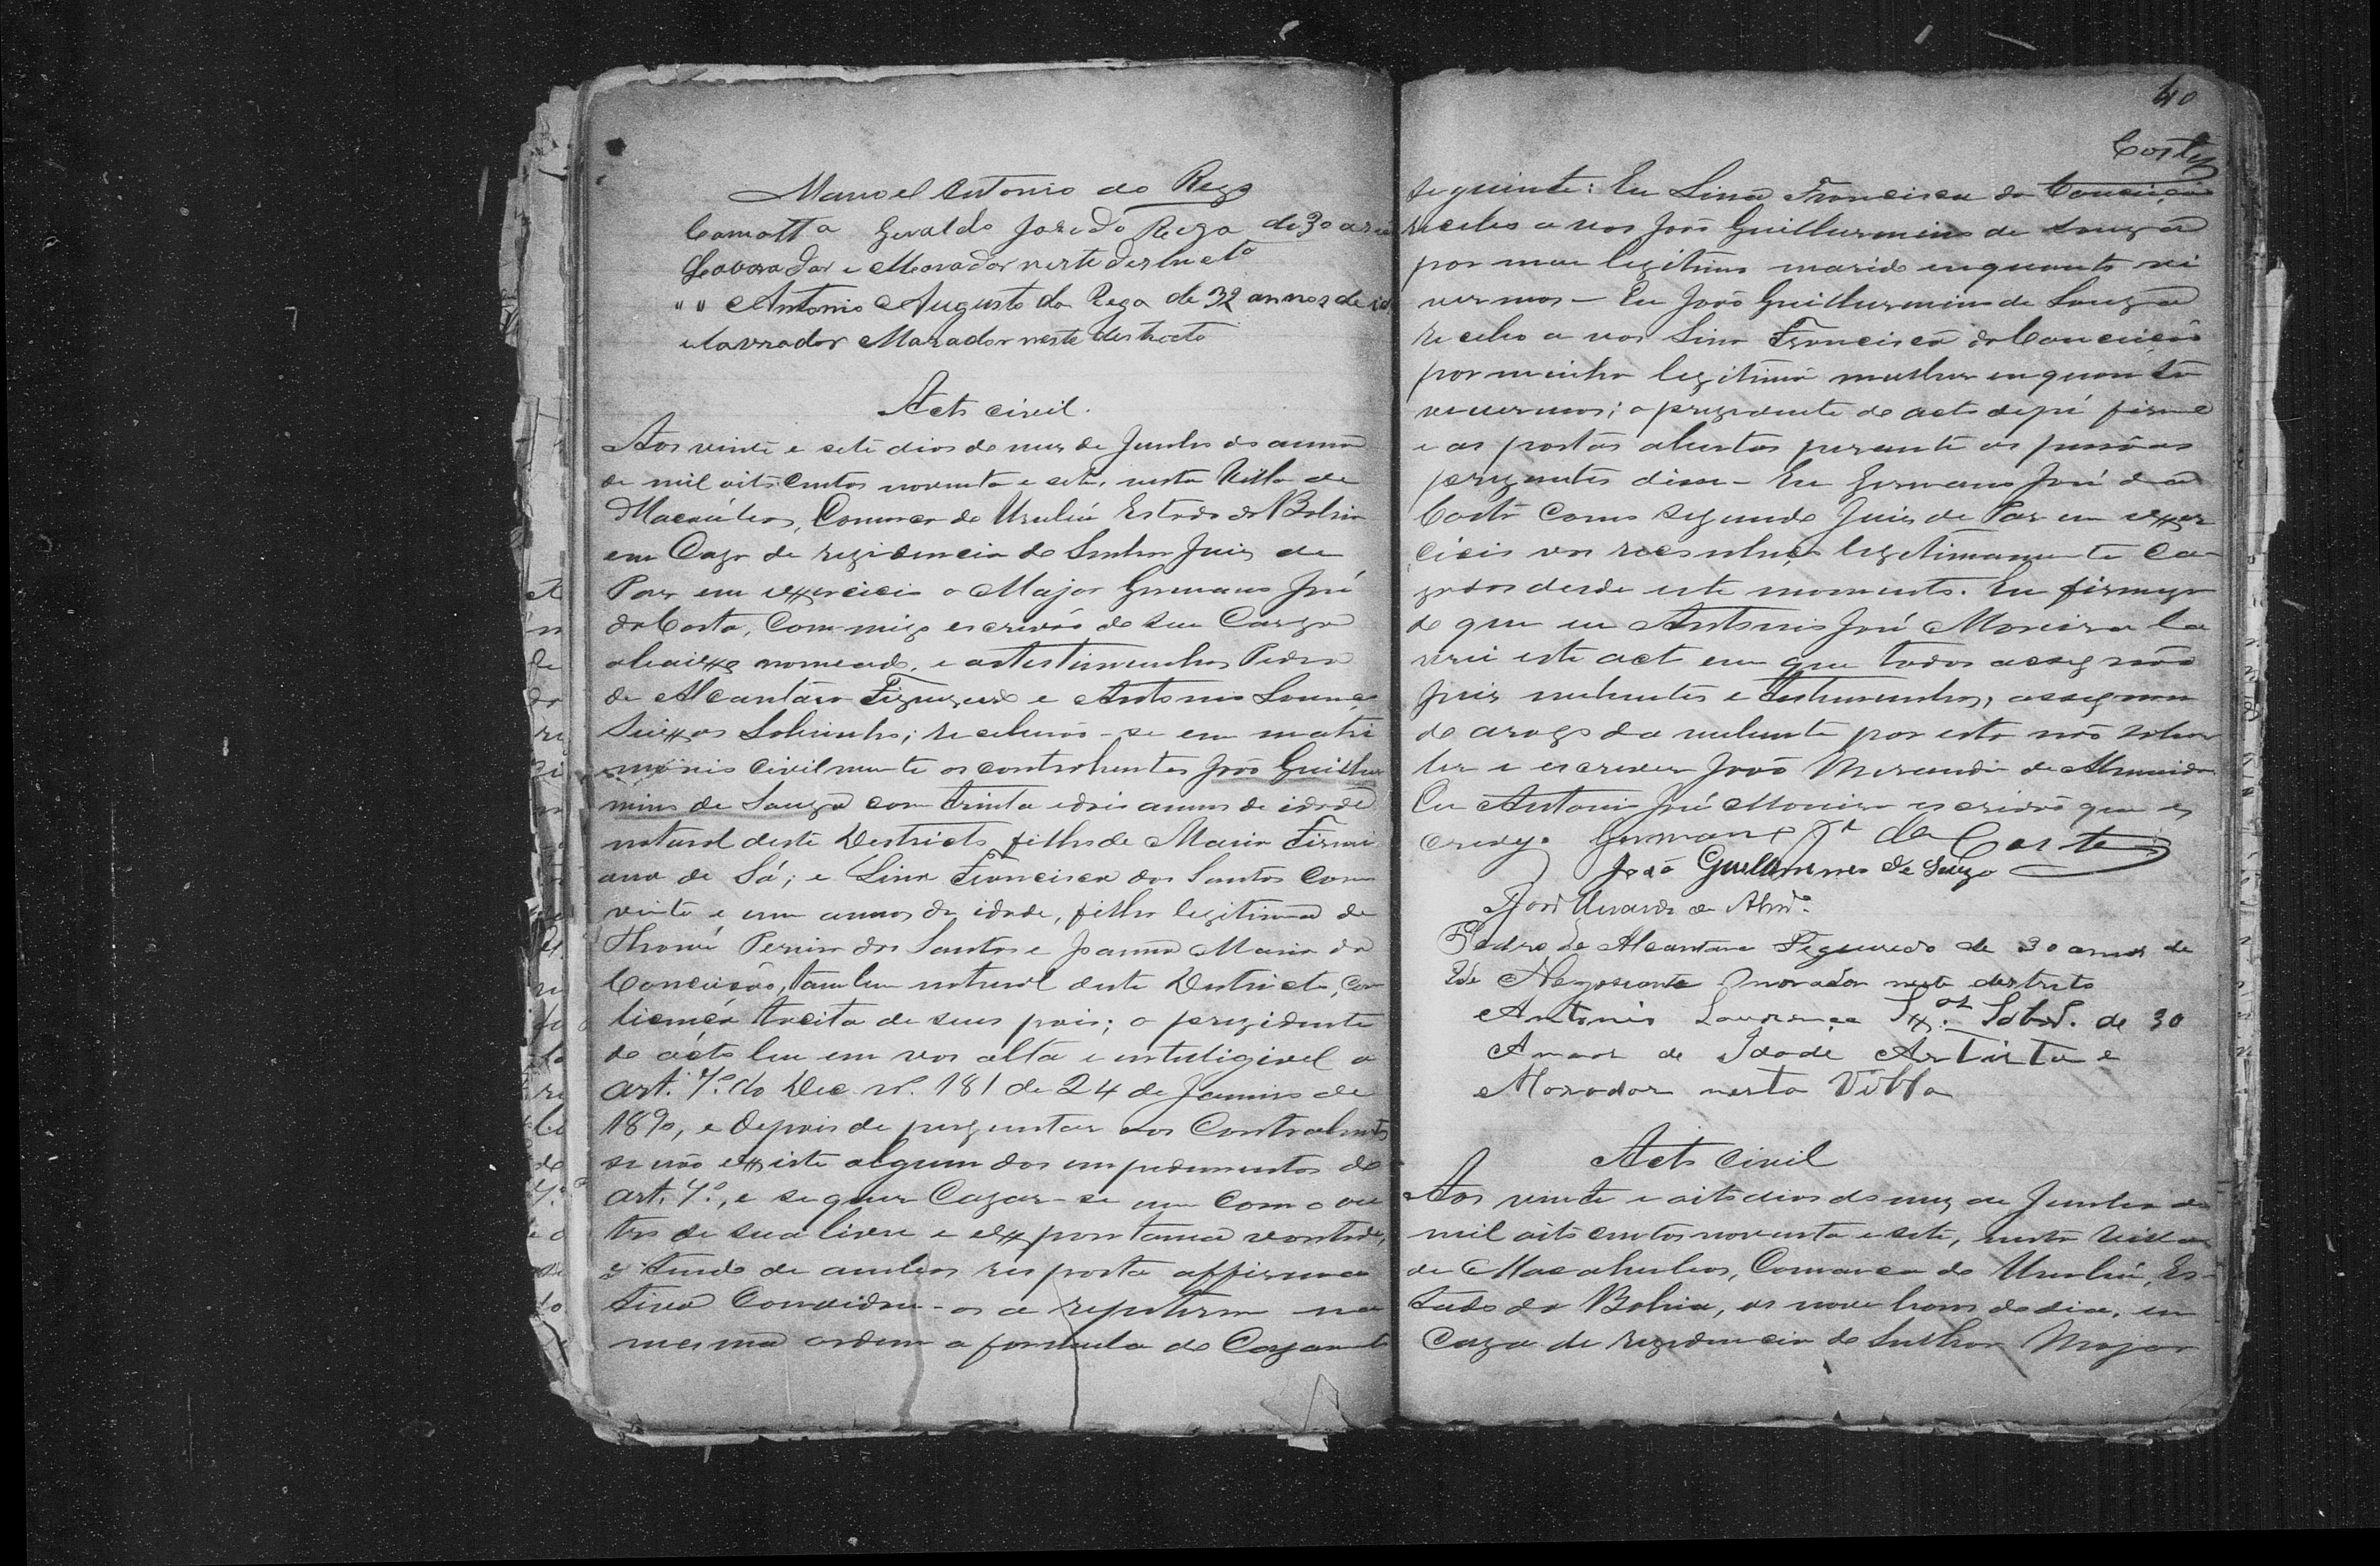 Manoel Antonio do Rego
Camotta Geraldo José do Rego de 30 an
Lavorador e Morador neste destricto
" " Antonio Augusto do Rego de 32 annos de id
e lavrador Morador neste destricto
Acto civil.
Aos vinte e sete dias do mez de Junho do anno
de mil oitocentos noventa e sete, nesta Villa de
Macaúbas, Comarca do Urubú Estado da Bahia
em Caza de rezidencia do Senhor Juiz de
Paz em exercicio o Major Germano José
da Costa, Commigo escrivão de seu Cargo
abaixo nomeado, e as testimunhas Pedro
de Alcantara Figueredo e Antonio Lourenço
Seixas Sobrinho; receberão-se em matri
monio civilmente os contrahentes João Guilher
mino de Souza com trinta e dois annos de idade
natural deste Destricto filho de Maria Firmi
ana de Sá; e Lina Francisca dos Santos com
vinte e um annos de idade, filha legitima de
Thomé Pereira dos Santos e Joanna Maria da
Conceição, tambem natural deste Destricto, com
licença tacita de seus pais; o prezidente
do acto leu em voz alta e intelligivel o
art. 7º do Dec. nº. 181 de 24 de Janeiro de
1890, e depois de perguntar aos Contrahentes
se não existe algum dos impedimentos do
art. 7º, e se quer Cazar-se um com o ou
tro de sua livre e expontanea vontade,
e tendo de ambos resposta affirma
tiva Convidou-os a repetirem na
mesma ordem a formula do Cazamento
40
Costa
seguinte: Eu Lina Francisca da Conceição
recebo a vos João Guilhermino de Souza
por meu legitimo marido enquanto vi
vermos – Eu João Guilhermino de Souza
recebo a vos Lina Francisca da Conceição
por minha legitima mulher enquanto
vivermos; o prezidente do acto de pé
e as portas abertas perante as pessôas
prezentes disse – Eu Germano José da
Costa como segundo Juiz de Paz em exer
cicio vos reconheço legitimamente Ca
zados desde este momento. Em firmeza
do que eu Antonio José Moreira la
vrei este acto em que todos assignão
Juiz nubentes e testemunhas, assignan
do arogo da nubente por esta não saber
ler e escrever João Miranda de Almeida
Eu Antonio José Moreira escrivão que es
crevy. Germano Jé da Costa
João Guilhermino de Souza
João Miranda de Almda.
Pedro de Alcantara Figueredo de 30 annos de
Ide Negosiante Morador neste destrito
Antonio Lourenço Sxas. Sobrº. de 30
Annos de Idade Artista e
Morador nesta Villa
Acto Civil
Aos vinte e oito dias do mez de Junho de
mil oitocentos noventa e sete, nesta Villa
de Macahubas, Comarca do Urubú, Es-
tado da Bahia, as nove horas do dia, em
Caza de rezidencia do Senhor Major